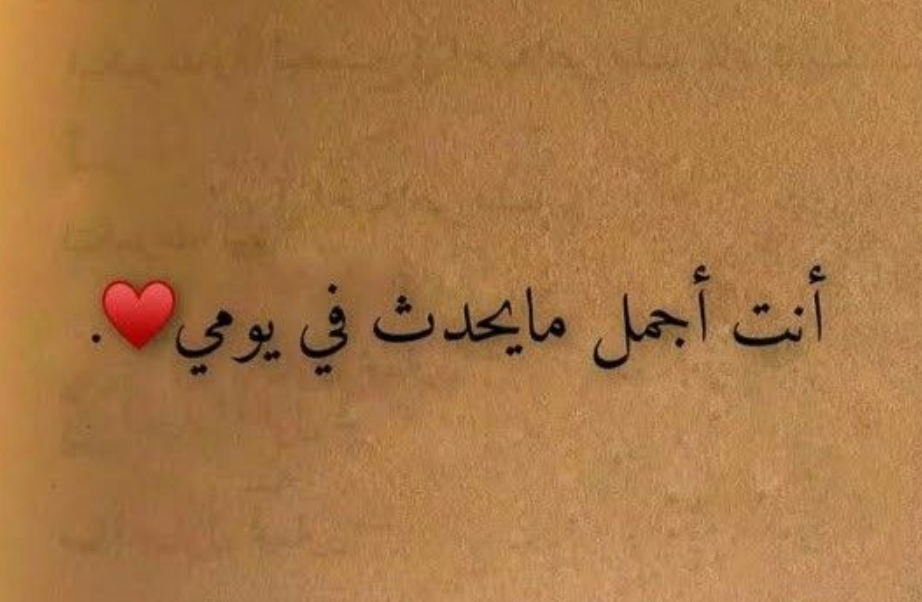 أنت أجمل مايحدث في يومي♥️.